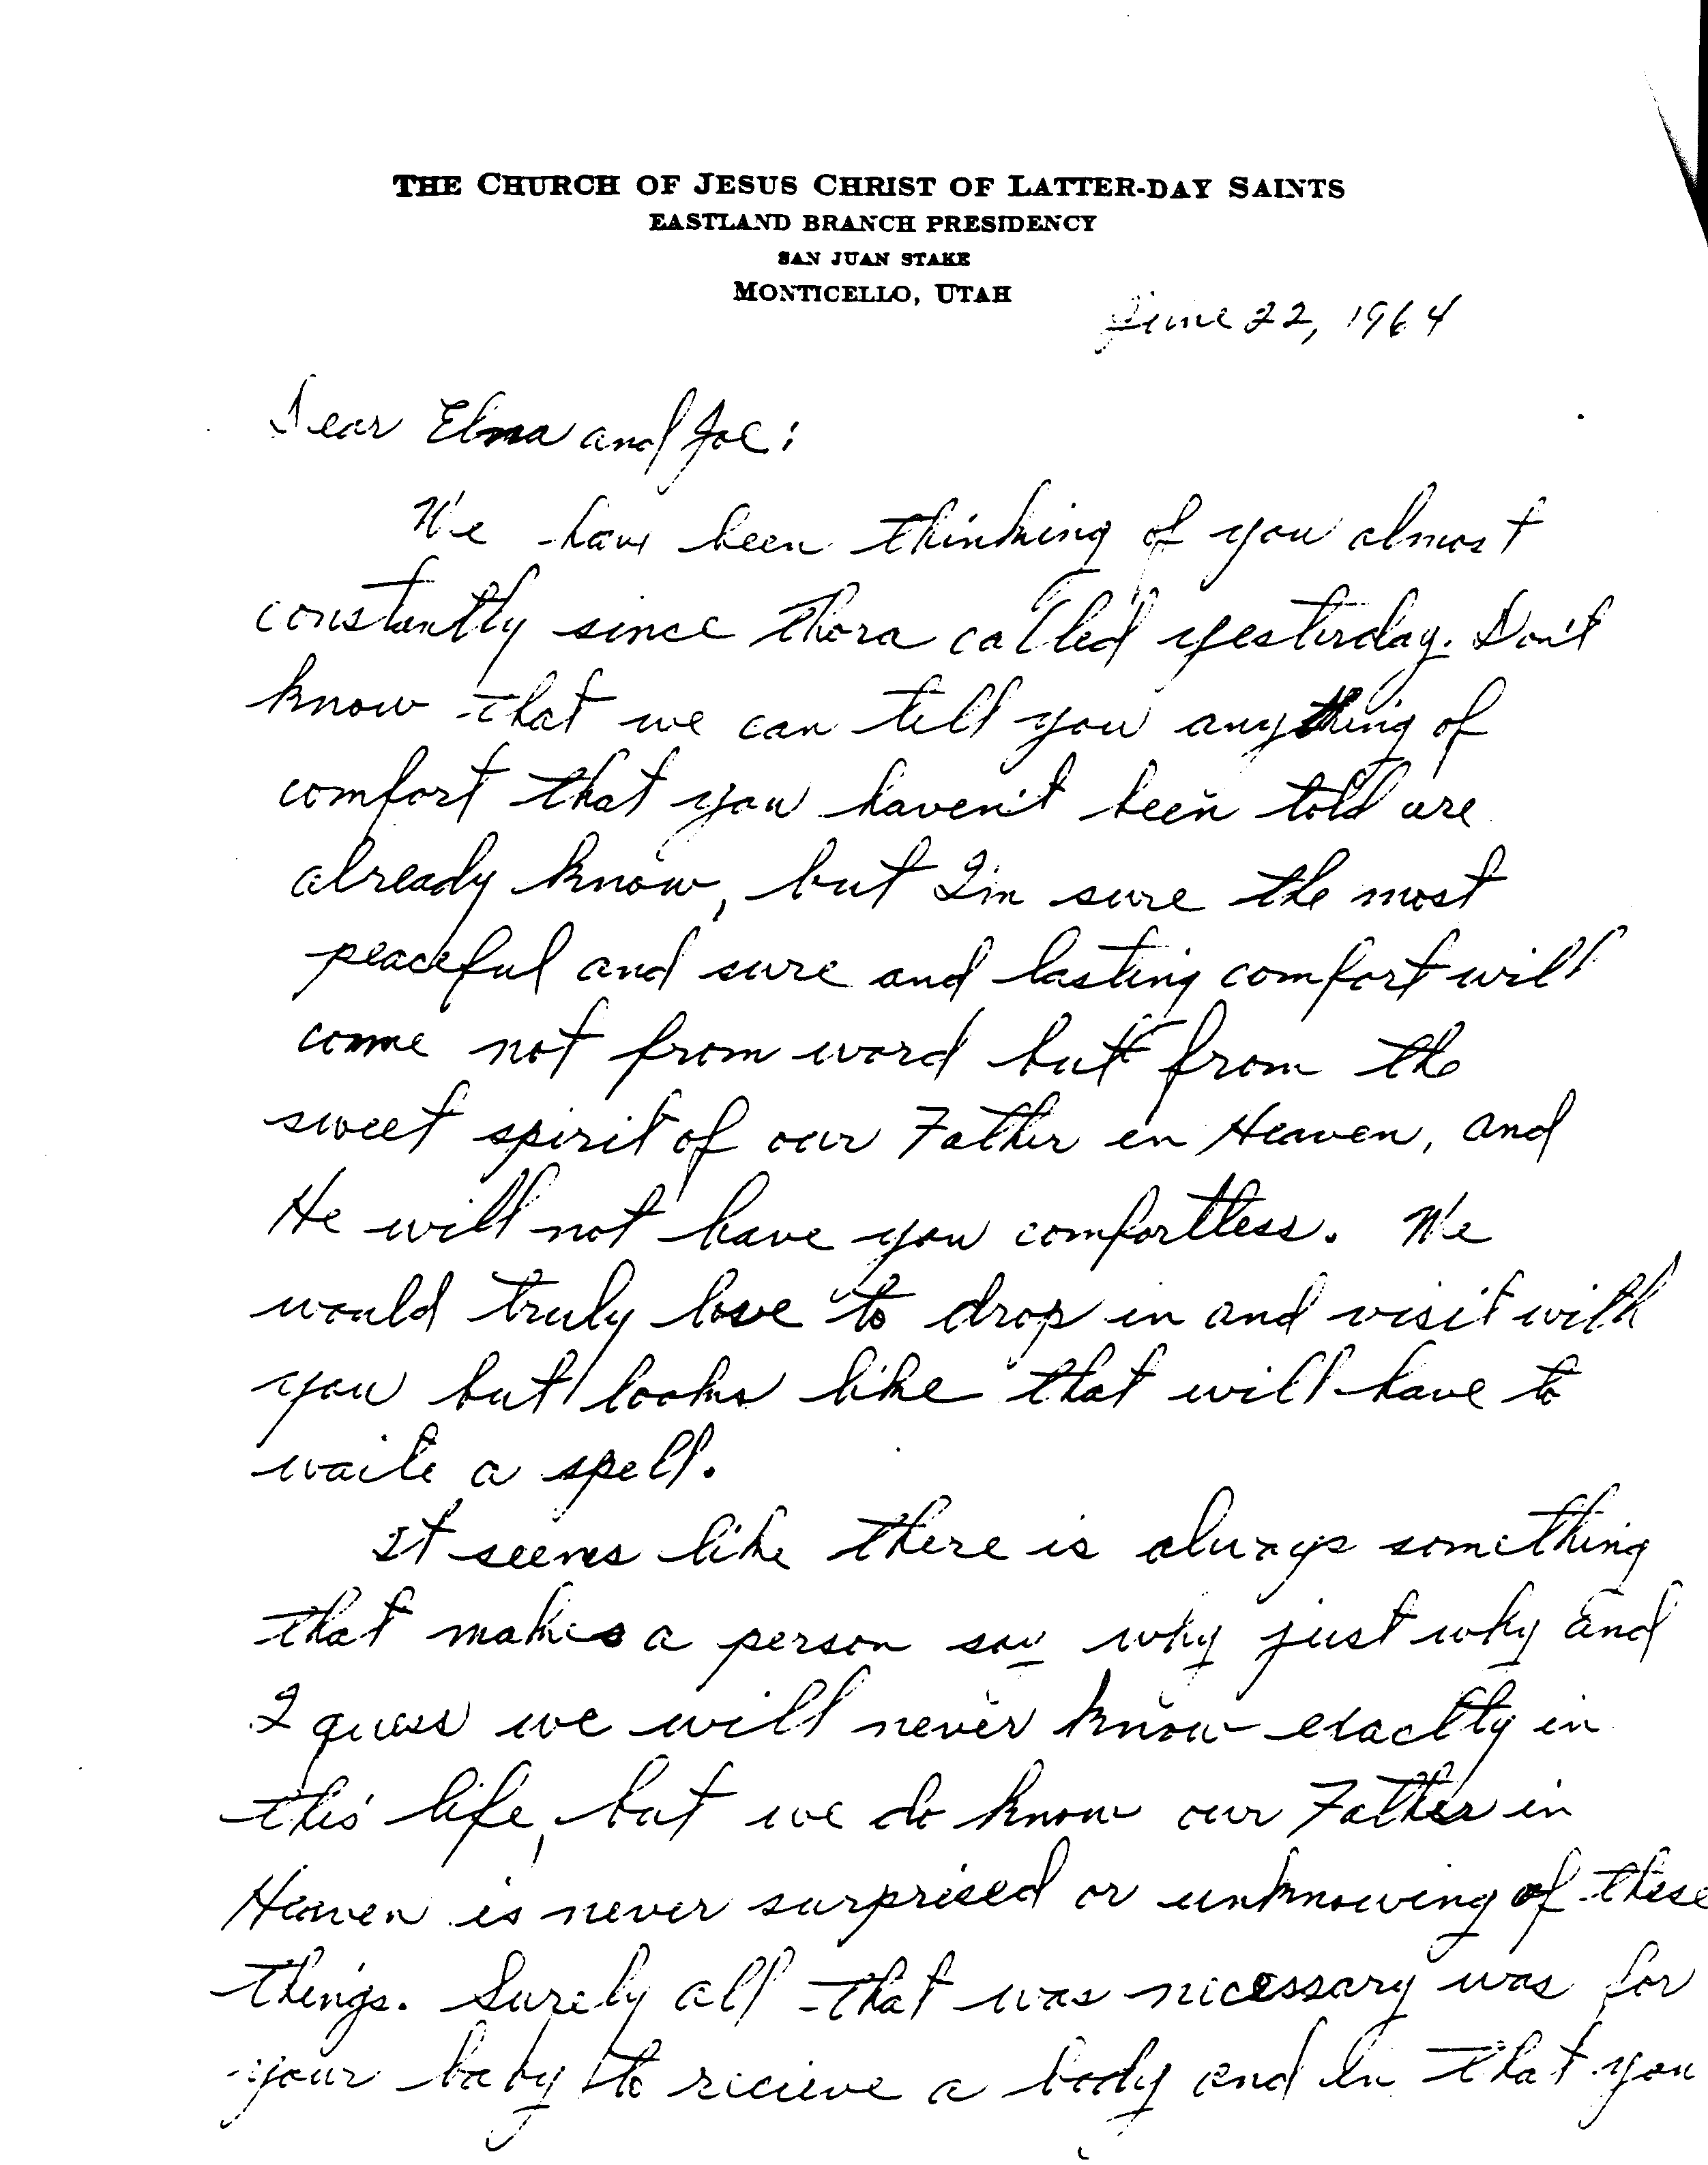 THE CHURCH OF JESUS CHRIST OF LATTER-DAY SAINTS
EASTLAND BRANCH PRESIDENCY
SAN JUAN STAKE
MONTICELLO, UTAH
June 22, 1964
Dear Elma and Joe:
We have been thinking of you almost
constantly since Thora called yesterday. Don't
know that we can tell you anything of
comfort that you haven't been told are
already know, but I'm sure the most
peaceful and sure and lasting comfort will
come not from word but from the
sweet spirit of our Father en Heaven, and
He will not leave you comfortless. We
would truly love to drop in and visit with
you but looks like that will have to
waite a spell.
It seems like there is always something
that makes a person say why just why and
I guess we will never know exactly in
this life, but we do know our Father in
Heaven is never surprised or unknowing of these
things. Surely all that was nicessary was for
your baby to recieve a body and in that you